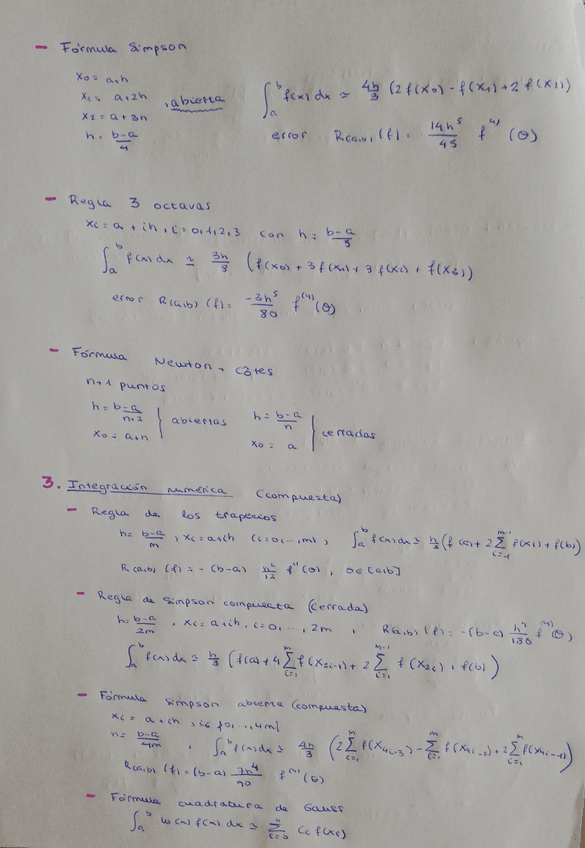 - Fórmula Simpson
x₀ = a+h
x₁ = a+2h , abierta
x₂ = a+3h
h = b-a/4
∫ₐᵇ f(x) dx ≃ 4h/3 (2f(x₀) - f(x₁) + 2 f(x₂))
error R(a,b) (f) = 14h⁵/45 f⁽⁴⁾ (θ)
- Regla 3 octavas
xᵢ = a + ih , i = 0,1,2,3 con h = b-a/3
∫ₐᵇ f(x) dx ≃ 3h/8 (f(x₀) + 3 f(x₁) + 3 f(x₂) + f(x₃))
error R(a,b) (f) = -3h⁵/80 f⁽⁴⁾ (θ)
- Fórmula Newton - Côtes
n+1 puntos
h = b-a/n+2
x₀ = a+h
abiertas
h = b-a/n
x₀ = a
cerradas
3. Integración numérica (compuesta)
- Regla de los trapecios
h = b-a/m , xᵢ = a+ih (i=0,...,m) , ∫ₐᵇ f(x) dx ≃ h/2 (f(a) + 2 ∑ᵢ₌₁ᵐ⁻¹ f(xᵢ) + f(b))
R(a,b) (f) = -(b-a) h²/12 f''(θ) , θ∈[a,b]
- Regla de Simpson compuesta (cerrada)
h = b-a/2m , xᵢ = a+ih, i=0,..., 2m , R(a,b) (f) = -(b-a) h⁴/180 f⁽⁴⁾ (θ)
∫ₐᵇ f(x) dx ≃ h/3 (f(a) + 4 ∑ᵢ₌₁ᵐ f(x₂ᵢ₋₁) + 2 ∑ᵢ₌₁ᵐ⁻¹ f(x₂ᵢ) + f(b))
- Fórmula simpson abierta (compuesta)
xᵢ = a + ih , i∈{0,...,4m}
h = b-a/4m , ∫ₐᵇ f(x) dx ≃ 4h/3 (2 ∑ᵢ₌₁ᵐ f(x₄ᵢ₋₃) - ∑ᵢ₌₁ᵐ f(x₄ᵢ₋₂) + 2 ∑ᵢ₌₁ᵐ f(x₄ᵢ₋₁))
R(a,b) (f) = (b-a) 7h⁴/90 f⁽⁴⁾ (θ)
- Fórmula cuadratura de Gauss
∫ₐᵇ ω(x) f(x) dx ≃ ∑ᵢ₌₀ⁿ cᵢ f(xᵢ)